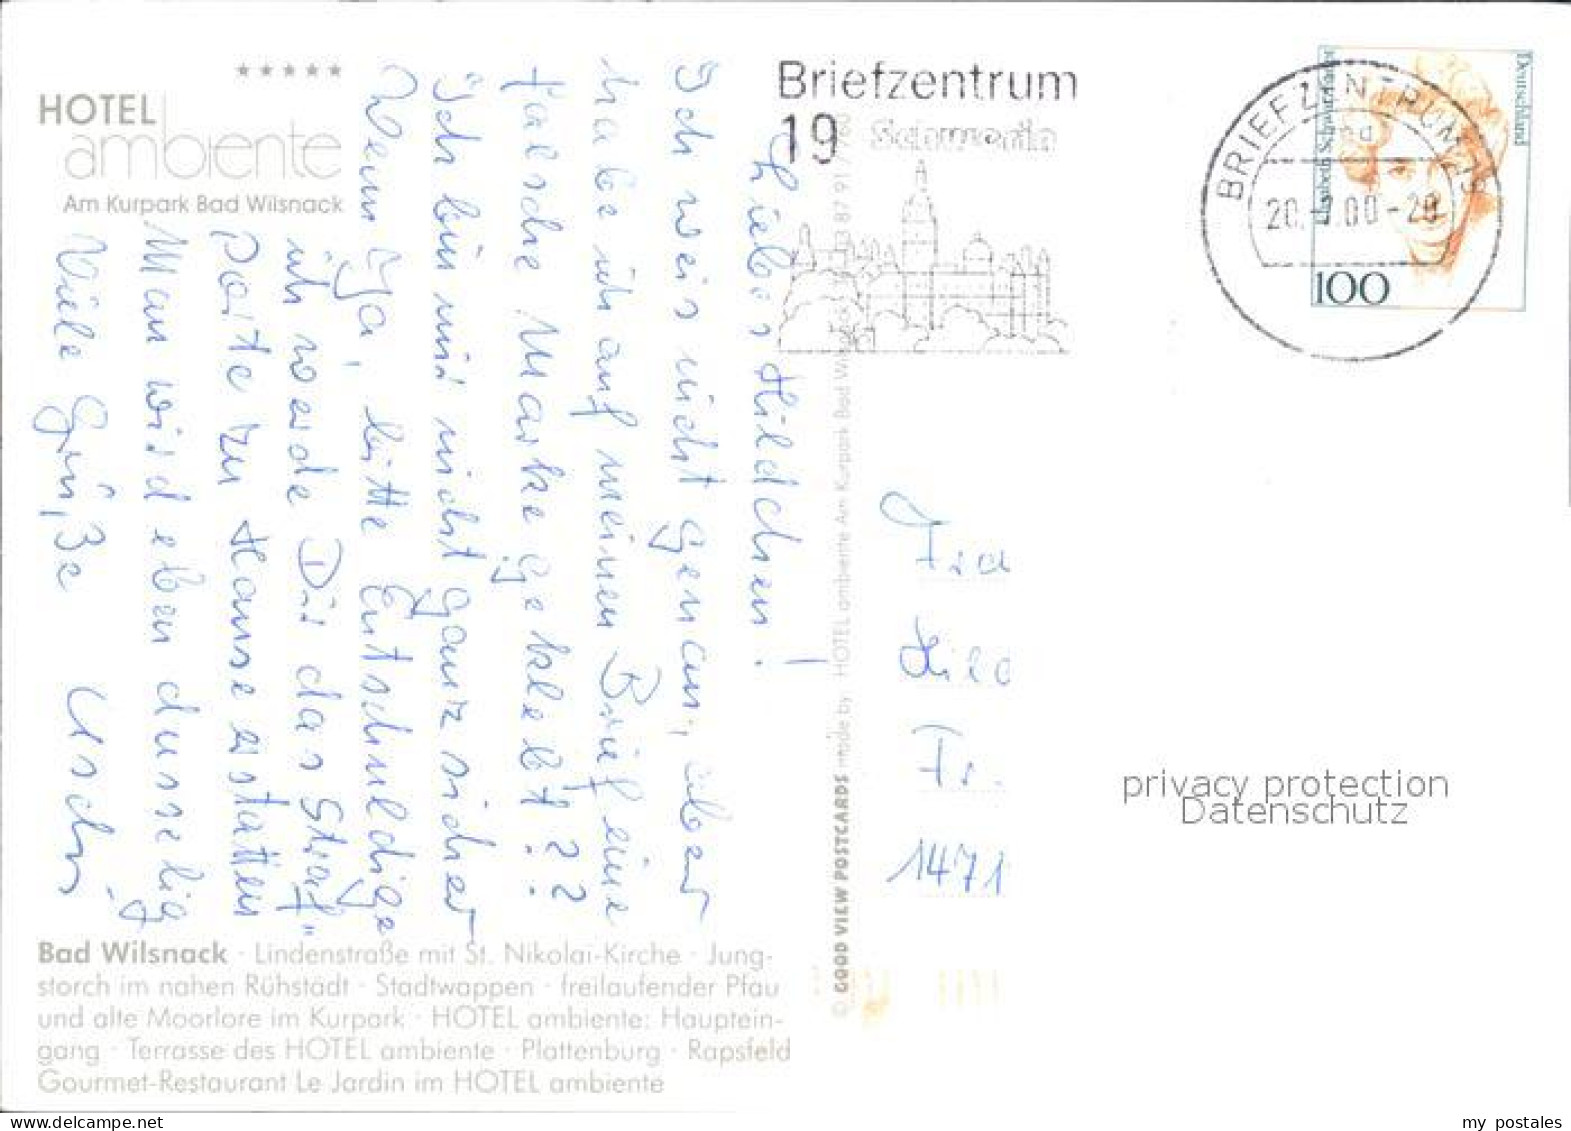 ★★★★★
HOTEL
ambiente
Am Kurpark Bad Wilsnack
Liebes Hildchen!
Ich weis nicht genau, aber
habe ich auf meinen Brief eine
falsche Marke geklebt???
Ich bin mir nicht ganz sicher
Wenn Ja, bitte Entschuldige
ich werde Dir das Straf-
porto zu Hause erstatten
Man wird eben dusselig
Viele Grüße Uschi
Bad Wilsnack · Lindenstraße mit St. Nikolai-Kirche · Jung-
storch im nahen Rühstädt · Stadtwappen · freilaufender Pfau
und alte Moorlore im Kurpark · HOTEL ambiente: Hauptein-
gang · Terrasse des HOTEL ambiente · Plattenburg · Rapsfeld
Gourmet-Restaurant Le Jardin im HOTEL ambiente
© GOOD VIEW POSTCARDS made by HOTEL ambiente Am Kurpark Bad Wilsnack 87 91 / 760
Briefzentrum
19 Schwerin
BRIEFZENTRUM 19
20. .00-20
Deutschland
Elisabeth Schwarzhaupt
100
Fra
Hild
Fr.
1471
privacy protection
Datenschutz
my postales